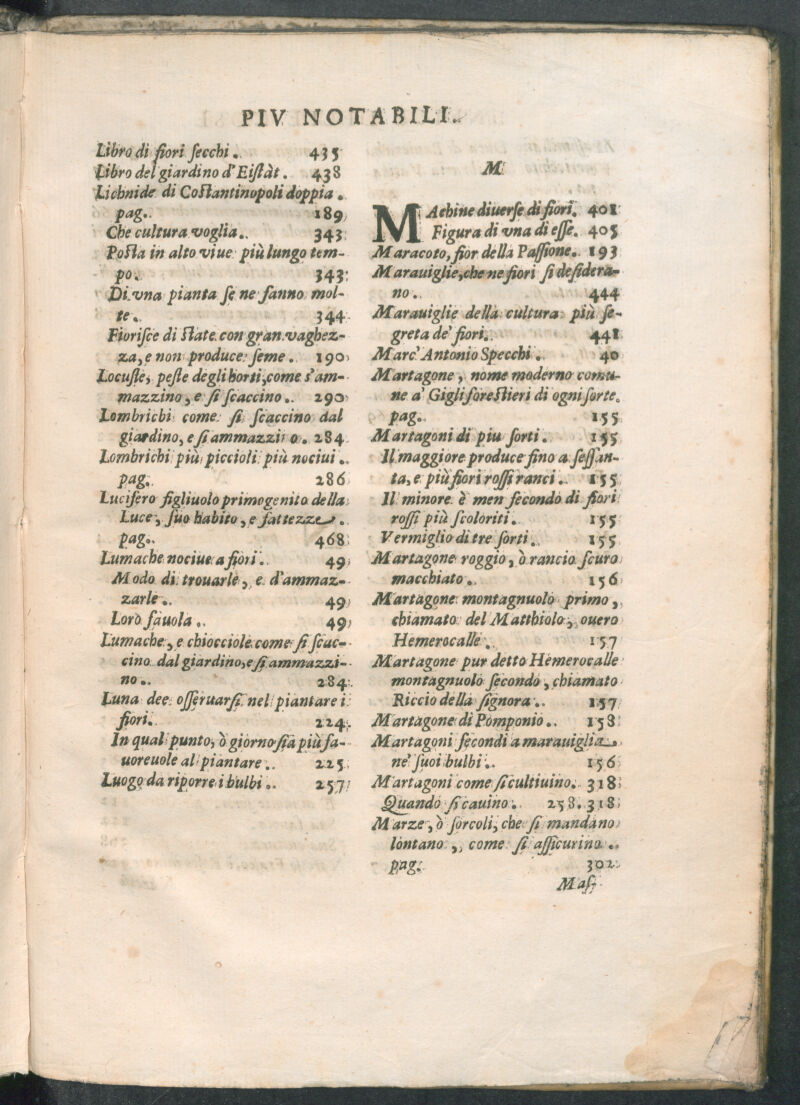 PIV NOTABILI.
Libro di fiori ſecchi. 435
Libro del giardino d'Eiſtàt. 438
Lichnide di Coſtantinopoli doppia.
pag. 189
Che cultura voglia. 343
Poſta in alto viue più lungo tem-
po. 343
Di vna pianta ſe ne fanno mol-
te. 344
Fioriſce di ſtate con gran vaghez-
za, e non produce ſeme. 190
Locuſte, peſte degli horti, come s'am-
mazzino, e ſi ſcaccino. 290
Lombrichi come ſi ſcaccino dal
giardino, e ſi ammazzino. 284
Lombrichi più piccioli più nociui.
pag. 286
Lucifero figliuolo primogenito della
Luce, ſuo habito, e fattezze.
pag. 468
Lumache nociue a fiori. 49
Modo di trouarle, e d'ammaz-
zarle. 49
Loro fauola. 49
Lumache, e chiocciole come ſi ſcac-
cino dal giardino, e ſi ammazzi-
no. 284
Luna dee oſſeruarſi nel piantare i
fiori. 224
In qual punto, ò giorno ſia più fa-
uoreuole al piantare. 225
Luogo da riporre i bulbi. 257
M
MAchine diuerſe di fiori. 401
Figura di vna di eſſe. 405
Maracoto, fior della Paſſione. 193
Marauiglie, che ne fiori ſi deſidera-
no. 444
Marauiglie della cultura più ſe-
greta de' fiori. 441
Marc' Antonio Specchi. 40
Martagone, nome moderno comu-
ne a' Gigli foreſtieri di ogni ſorte.
pag. 155
Martagoni di piu ſorti. 155
Il maggiore produce fino a ſeſſan-
ta, e più fiori roſſi ranci. 155
Il minore è men fecondo di fiori
roſſi più ſcoloriti. 155
Vermiglio di tre ſorti. 155
Martagone roggio, ò rancio ſcuro
macchiato. 156
Martagone montagnuolo primo,
chiamato del Matthiolo, ouero
Hemerocalle. 157
Martagone pur detto Hemerocalle
montagnuolo ſecondo, chiamato
Riccio della ſignora. 157
Martagone di Pomponio. 158
Martagoni fecondi a marauiglia
ne' ſuoi bulbi. 156
Martagoni come ſi cultiuino. 318
Quando ſi cauino. 258. 318
Marze, ò ſorcoli, che ſi mandano
lontano, come ſi aſſicurino.
pag. 302
Maſ-